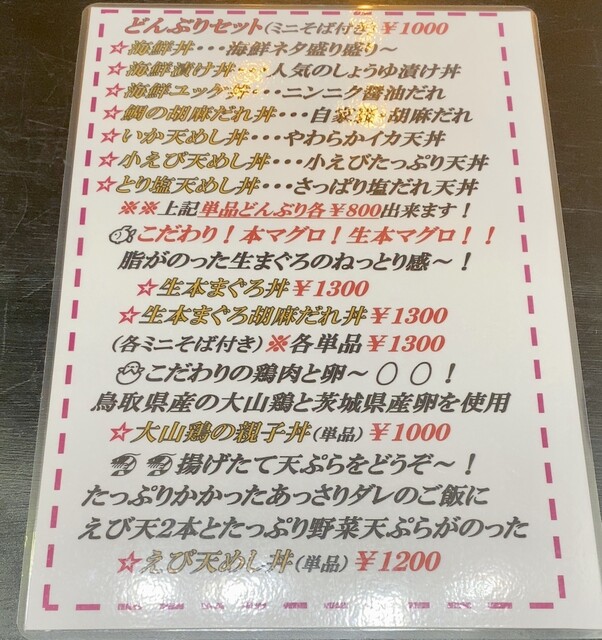 どんぶりセット(ミニそば付き)￥1000
☆海鮮丼・・・海鮮ネタ盛り盛り～
☆海鮮漬け丼・・・人気のしょうゆ漬け丼
☆海鮮ユッケ丼・・・ニンニク醤油だれ
☆鯛の胡麻だれ丼・・・自家製 胡麻だれ
☆いか天めし丼・・・やわらかイカ天丼
☆小えび天めし丼・・・小えびたっぷり天丼
☆とり塩天めし丼・・・さっぱり塩だれ天丼
※※上記単品どんぶり各￥800出来ます！
こだわり！本マグロ！生本マグロ！！
脂がのった生まぐろのねっとり感～！
☆生本まぐろ丼￥1300
☆生本まぐろ胡麻だれ丼￥1300
(各ミニそば付き)※各単品￥1300
こだわりの鶏肉と卵～〇〇！
鳥取県産の大山鶏と茨城県産卵を使用
☆大山鶏の親子丼(単品)￥1000
揚げたて天ぷらをどうぞ～！
たっぷりかかったあっさりダレのご飯に
えび天2本とたっぷり野菜天ぷらがのった
☆えび天めし丼(単品)￥1200